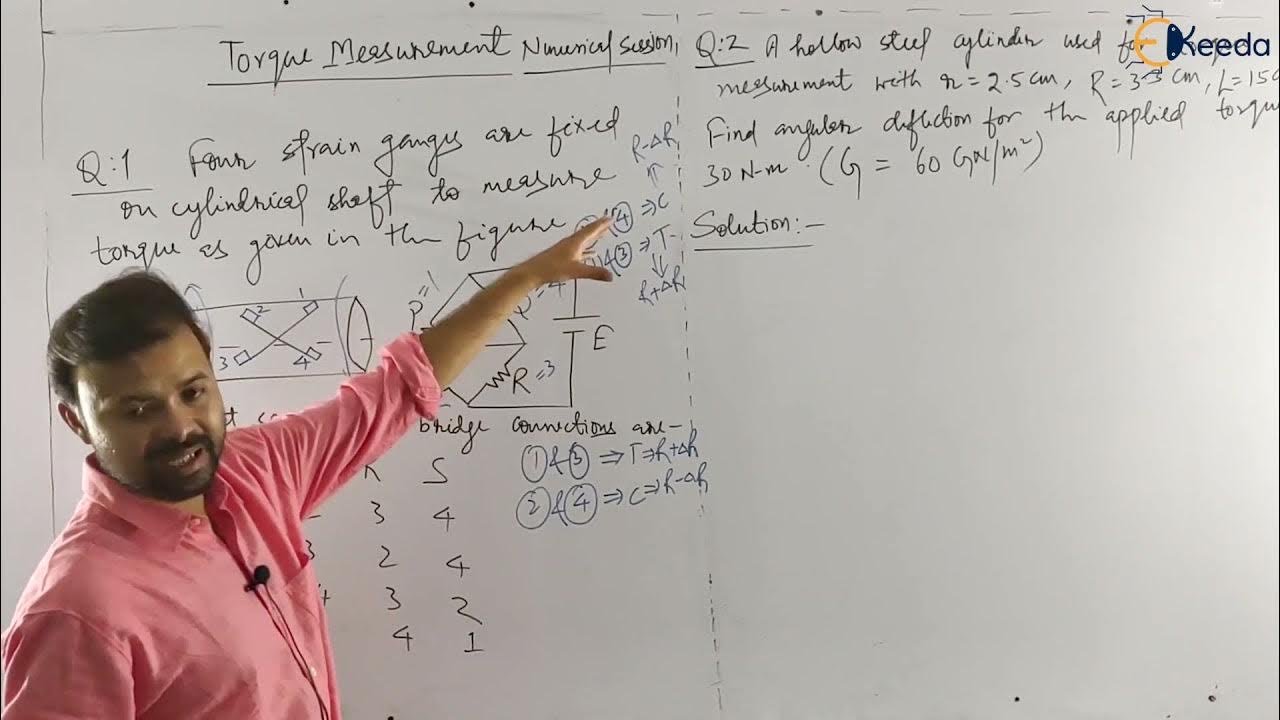 Torque Measurement Numerical Session
Q:1 Four strain gauges are fixed
on cylindrical shaft to measure
torque as given in the figure
R-ΔR
4 ⇒ C
3 ⇒ T
R+ΔR
2 1
3 4
P=1
=4
R=3
E
bridge connections are-
S
3 4
3 2 4
3 2
4 1
1 & 3 ⇒ T ⇒ R+ΔR
2 & 4 ⇒ C ⇒ R-ΔR
Q:2 A hollow steel cylinder used
measurement with r = 2.5 cm, R = 3 cm, L = 15
Find angular deflection for the applied torque
30 N-m. (G = 60 GN/m²)
Solution:-
EKeeda